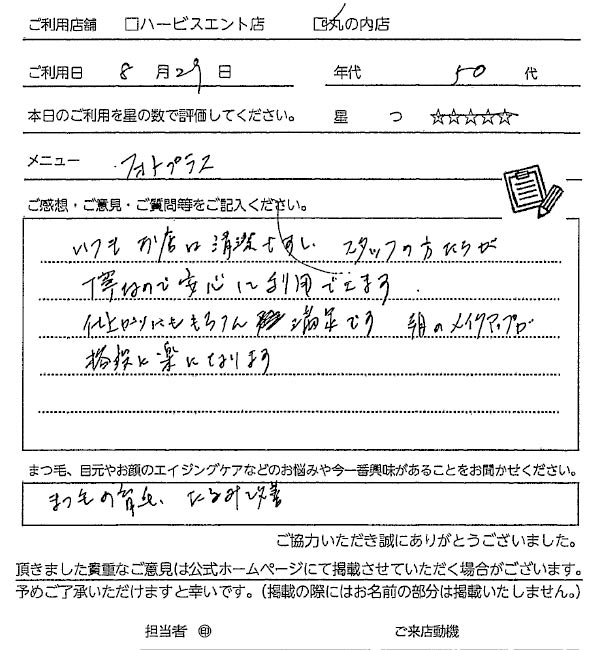 ご利用店舗 □ハービスエント店 □丸の内店
ご利用日 8 月 29 日 年代 50 代
本日のご利用を星の数で評価してください。 星 つ ☆☆☆☆☆
メニュー フォトプラス
ご感想・ご意見・ご質問等をご記入ください。
いつもお店は清潔ですし、スタッフの方たちが
丁寧なので安心して利用できます.
仕上がりにももちろん 満足です 朝のメイクアップが
格段に楽になります
まつ毛、目元やお顔のエイジングケアなどのお悩みや今一番興味があることをお聞かせください。
まつ毛の育毛、たるみ改善
ご協力いただき誠にありがとうございました。
頂きました貴重なご意見は公式ホームページにて掲載させていただく場合がございます。
予めご了承いただけますと幸いです。（掲載の際にはお名前の部分は掲載いたしません。）
担当者 ㊞ ご来店動機